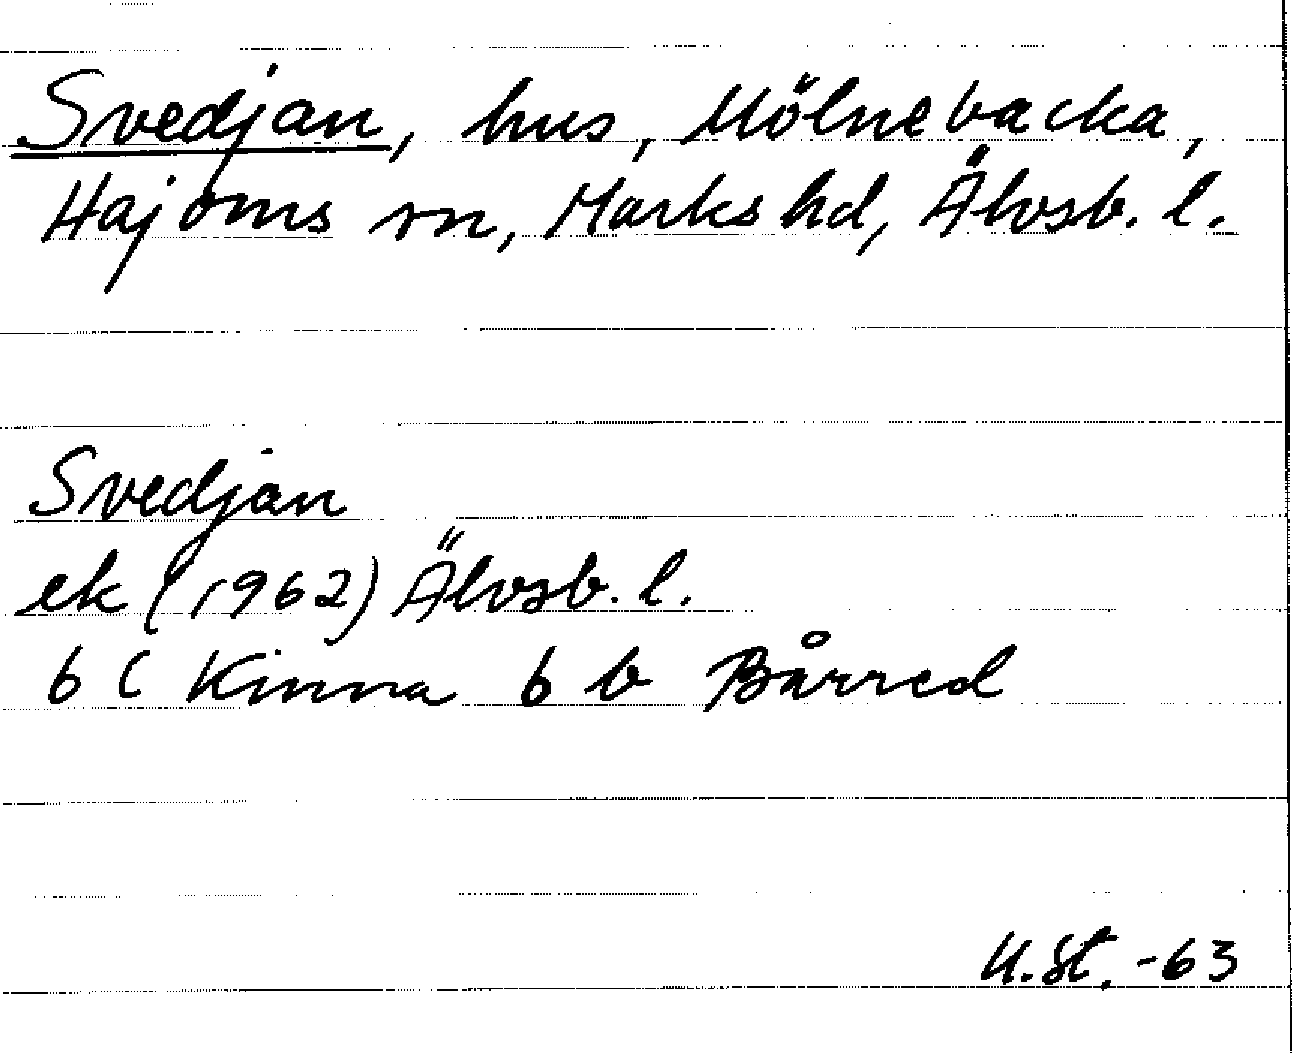 Svedjan, hus, Mölnebacka,
Hajoms sn, Marks hd, Älvsb. l.
Svedjan
ek (1962) Älvsb. l.
6 C Kinna 6 b Bårred
U.St. -63